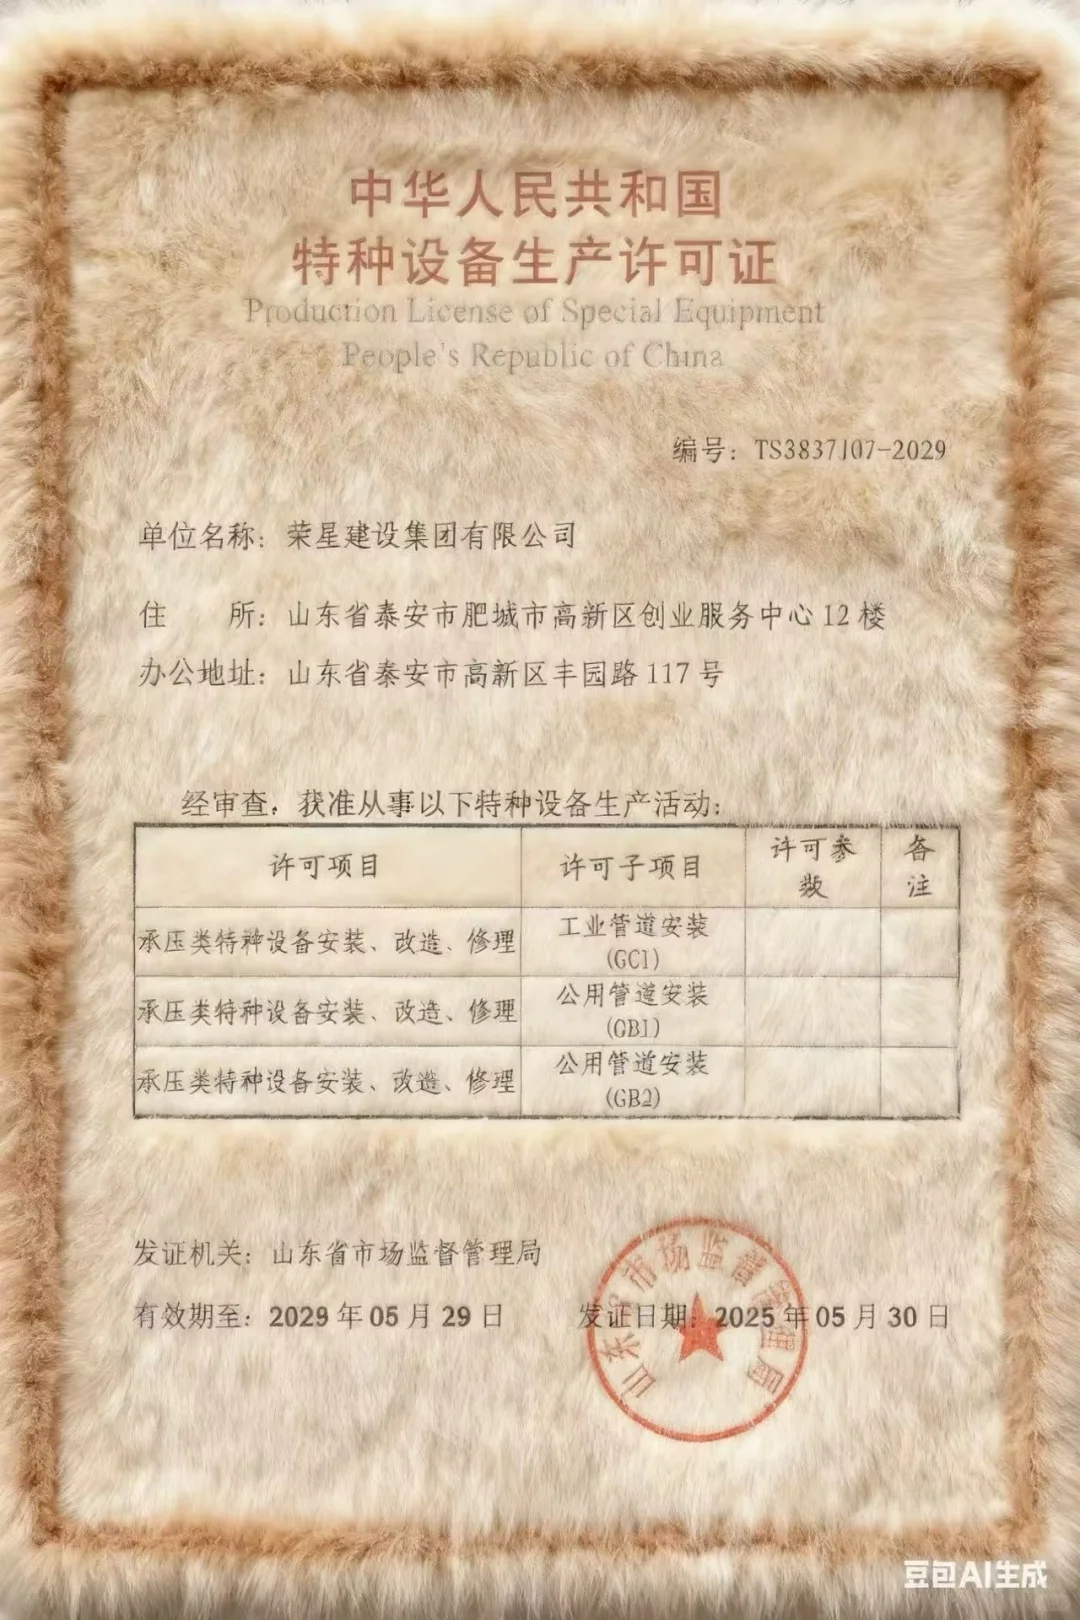 中华人民共和国
特种设备生产许可证
Production License of Special Equipment
People's Republic of China
编号：TS3837J07-2029
单位名称：荣星建设集团有限公司
住 所：山东省泰安市肥城市高新区创业服务中心12楼
办公地址：山东省泰安市高新区丰园路117号
经审查，获准从事以下特种设备生产活动：
许可项目 许可子项目 许可参数 备注
承压类特种设备安装、改造、修理 工业管道安装(GC1)
承压类特种设备安装、改造、修理 公用管道安装(GB1)
承压类特种设备安装、改造、修理 公用管道安装(GB2)
发证机关：山东省市场监督管理局
有效期至：2029年05月29日 发证日期：2025年05月30日
山东省市场监督管理局
豆包AI生成